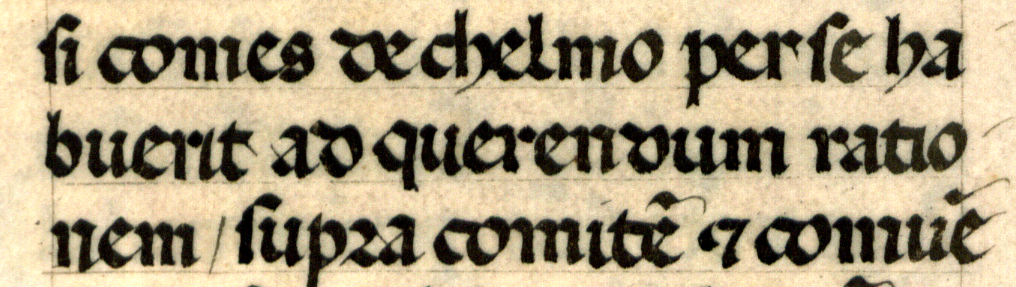 si comes de chelmo per se ha
buerit ad querendum ratio
nem / supra comitē ⁊ comuē